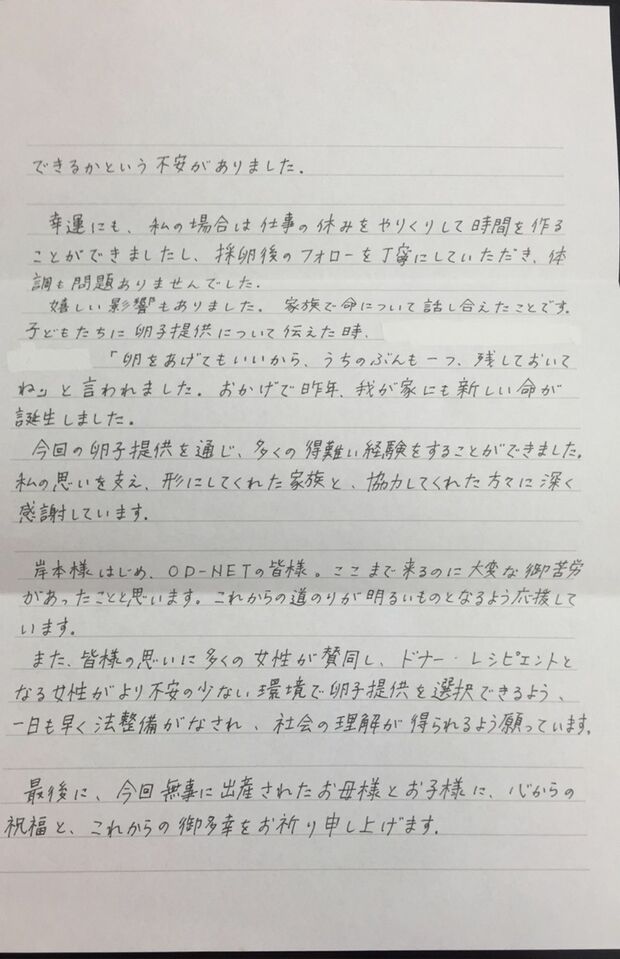 できるかという不安がありました。
幸運にも、私の場合は仕事の休みをやりくりして時間を作る
ことができましたし、採卵後のフォローを丁寧にしていただき、体
調も問題ありませんでした。
嬉しい影響もありました。家族で命について話し合えたことです。
子どもたちに卵子提供について伝えた時、
「卵をあげてもいいから、うちのぶんも一つ、残しておいて
ね」と言われました。おかげで昨年、我が家にも新しい命が
誕生しました。
今回の卵子提供を通じ、多くの得難い経験をすることができました。
私の思いを支え、形にしてくれた家族と、協力してくれた方々に深く
感謝しています。
岸本様はじめ、OD-NETの皆様。ここまで来るのに大変な御苦労
があったことと思います。これからの道のりが明るいものとなるよう応援して
います。
また、皆様の思いに多くの女性が賛同し、ドナー・レシピエントと
なる女性がより不安の少ない環境で卵子提供を選択できるよう、
一日も早く法整備がなされ、社会の理解が得られるよう願っています。
最後に、今回無事に出産されたお母様とお子様に、心からの
祝福と、これからの御多幸をお祈り申し上げます。